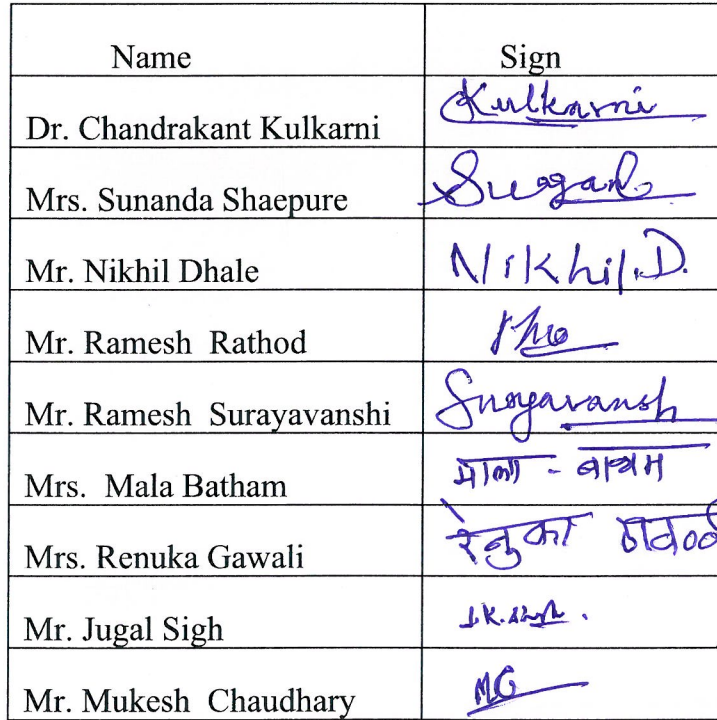 Name Sign
Dr. Chandrakant Kulkarni Kulkarni
Mrs. Sunanda Shaepure
Mr. Nikhil Dhale Nikhil.D.
Mr. Ramesh Rathod
Mr. Ramesh Surayavanshi
Mrs. Mala Batham माला - बाथम
Mrs. Renuka Gawali रेनुका
Mr. Jugal Sigh J.K.Singh.
Mr. Mukesh Chaudhary MC